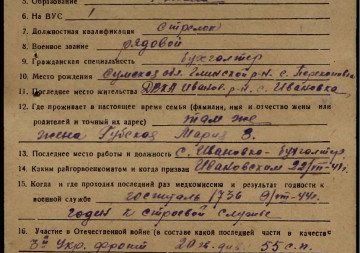 5. Образование
6. На ВУС
7. Должностная квалификация стрелок
8. Военное звание рядовой
9. Гражданская специальность бухгалтер
10. Место рождения Сумская обл. Глинской р-н. с.
11. Последнее место жительства р-н. с. Ивановка
12. Где проживает в настоящее время семья (фамилия, имя и отчество жены или
родителей и точный их адрес) там же
жена Губская Мария В.
13. Последнее место работы и должность с. Ивановка - бухгалтер
14. Каким райгорвоенкоматом и когда призван Ивановским 22/III-44г.
15. Когда и где проходил последний раз медкомиссию и результат годности к
военной службе госпиталь 1736 9/VII-44г.
годен к строевой службе
16. Участие в Отечественной войне (в составе какой последней части и качестве
3й Укр. фронт 20 гв. див. 55 с.п.